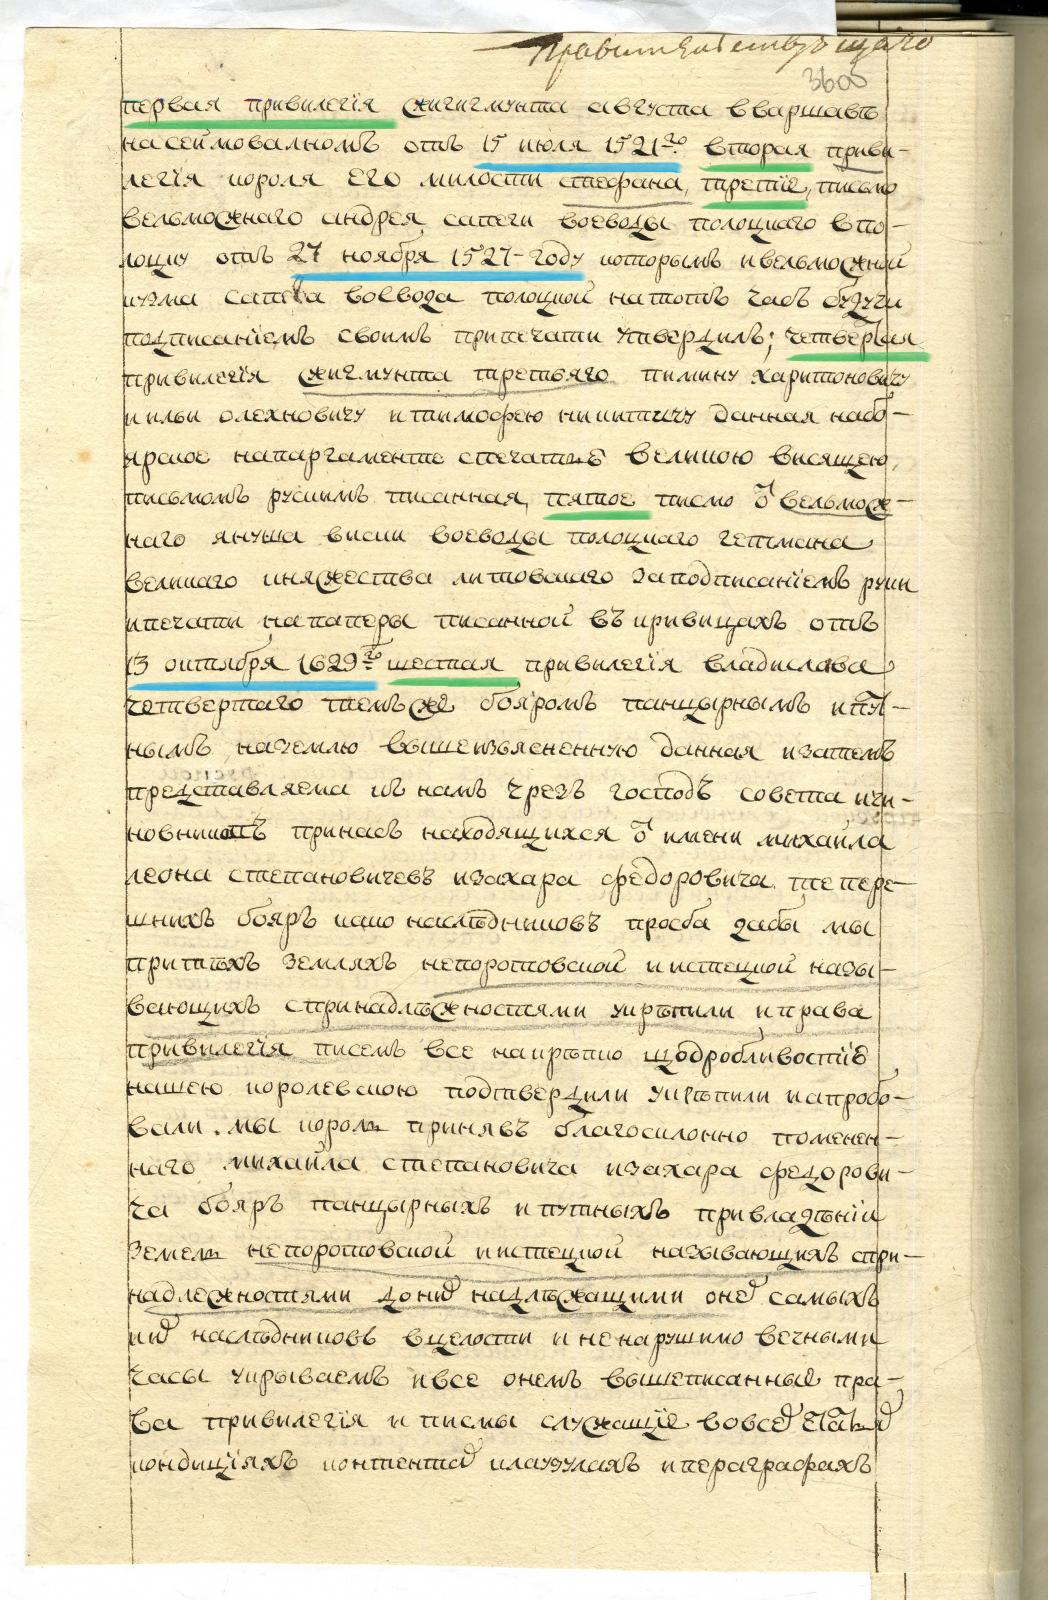 Правительствующаго
360б
первая привилегія Жигимунта августа вваршавѣ
насеймовалномъ отъ 15 июля 1521го. вторая приви-
легія короля его милости стефана, третіе, письмо
вельможнаго андрея сапеги воеводы полоцкаго впо-
лоцку отъ 27 ноября 1527-году которымъ ивельможной
кузма сапега воевода полоцкой натотъ часъ будучи
подписаніемъ своимъ припечати утвердилъ; четвертая
привилегія жигмунта третьяго пимину харитоновичу
и ильи олехновичу итимофею никитичу данная набо-
ярское напаргаменте спечатью великою висящею,
письмомъ рускимъ писанная, пятое писмо от вельмож-
наго януша кисии воеводы полоцкаго гетмана
великаго княжества литовскаго заподписаніемъ руки
ипечати напаперы писанной въ кривицахъ отъ
13 октября 1629го шестая привилегія владислава
четвертаго темъже бояромъ панцырнымъ ипут-
нымъ наземлю вышеизъясненную данная изатемъ
представляема къ намъ чрезъ господъ совета ичи-
новниковъ принасъ находящихся от имени михайла
леона степановичевъ изахара федоровича тепере-
шнихъ бояръ како наслѣдниковъ прозба дабы мы
притѣхъ земляхъ непоротовской иистецкой назы-
вающихъ спринадлѣжностями укрѣпили иправа
привилегія писемъ все накрѣпко щодробливостіе
нашею королевскою подтвердили укрѣпили иапробо-
вали. мы король принявъ благосклонно поменен-
наго михайла степановича изахара федорови-
ча бояръ панцырныхъ ипутныхъ привладѣніи
земель непоротовской иистецкой называющихъ спри-
надлежностями доних надлѣжащими оней самыхъ
ких наслѣдниковъ вцелости иненарушимо вечными
часы укрываемъ ивсе онемъ вышеписанные пра-
ва привилегія иписмы служащіе вовсех
кондиціяхъ контентах клаузулахъ ипераграфахъ